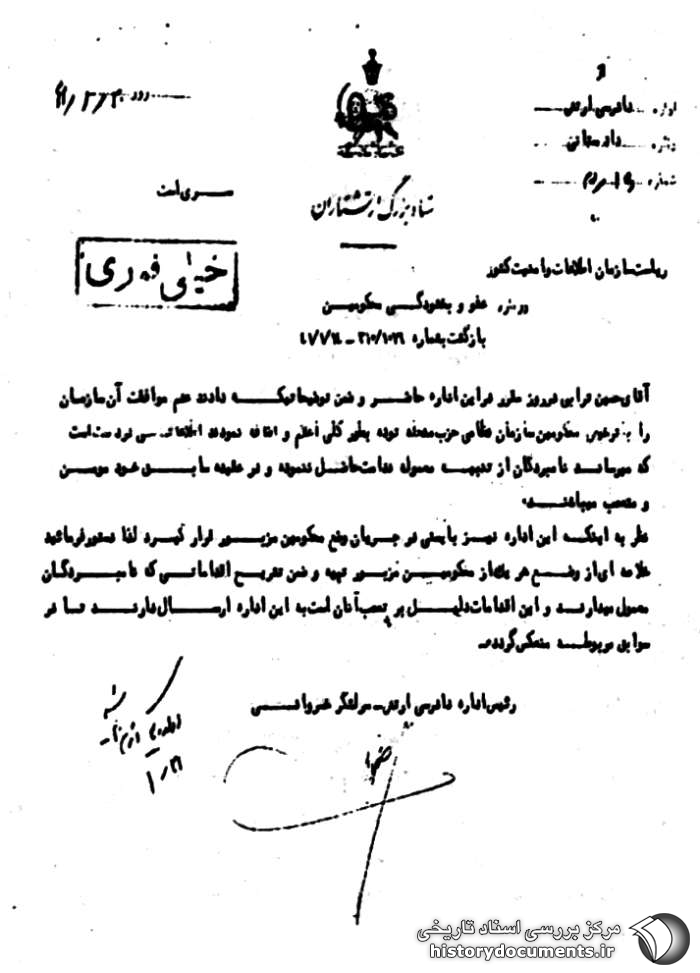 از
اداره دادرسی ارتش
دایره دادستانی
شماره
روز
ستاد بزرگ ارتشتاران
سری است
خیلی فوری
ریاست سازمان اطلاعات و امنیت کشور
درباره عفو و بخشودگی محکومین
بازگشت بشماره
آقای حسین ترابی دیروز مقرر در این اداره حاضر و ضمن توضیحاتیکه دادند عدم موافقت آن سازمان
را با ترخیص محکومین سازمان نظامی حزب منحله توده بطور کلی اعلام و اضافه نمودند اطلاعاتی در دست است
که میرساند نامبردگان از تنبیه معموله ندامت حاصل ننموده و در عقیده سابق خود مومن
و متعصب میباشند.
نظر به اینکه این اداره نیز بایستی در جریان وضع محکومین مزبور قرار گیرد لذا دستور فرمائید
خلاصه ای از وضع هر یک از محکومین مزبور تهیه و ضمن تشریح اقداماتی که نامبردگان
معمول میدارند و این اقدامات دلیل بر تعصب آنان است به این اداره ارسال دارند تا در
سوابق مربوطه منعکس گردد.
رئیس اداره دادرسی ارتش - سرلشگر خسروانی
مرکز بررسی اسناد تاریخی
historydocuments.ir